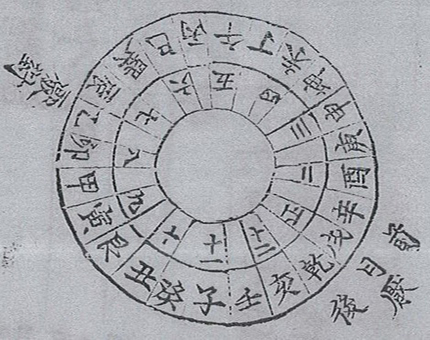 子癸丑艮寅甲卯乙辰巽巳丙午丁未坤申庚酉辛戌乾亥壬
正二三四五六七八九
十一十二
前
日厭
後